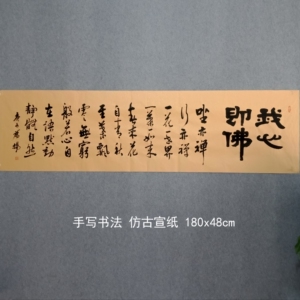 我心
即佛
坐亦禪
行亦禪
一花一世界
一葉一如来
春来花
自青秋
至葉飄
零無窮
般若心自
在語默動
静體自然
手写书法 仿古宣纸 180x48cm